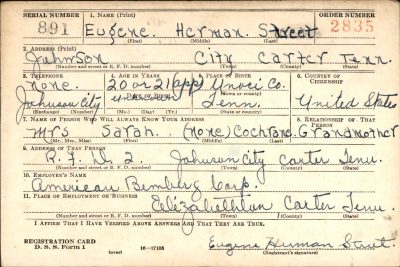 SERIAL NUMBER 1. NAME (Print) ORDER NUMBER
891 Eugene Herman Street 2835
(First) (Middle) (Last)
2. ADDRESS (Print)
Johnson City Carter Tenn.
(Number and street or R. F. D. number) (Town) (County) (State)
3. TELEPHONE 4. AGE IN YEARS 5. PLACE OF BIRTH 6. COUNTRY OF CITIZENSHIP
none. 20 or 21 (app) Unoci Co.
(Town or county)
Johnson City Tenn. United States
(Exchange) (Number) (State or country)
7. NAME OF PERSON WHO WILL ALWAYS KNOW YOUR ADDRESS 8. RELATIONSHIP OF THAT PERSON
Mrs Sarah. (none) Cochrane. Grandmother
(Mr., Mrs., Miss) (First) (Middle) (Last)
9. ADDRESS OF THAT PERSON
R. F. D. 2. Johnson City Carter Tenn.
(Number and street or R. F. D. number) (Town) (County) (State)
10. EMPLOYER'S NAME
American Bemberg Corp.
11. PLACE OF EMPLOYMENT OR BUSINESS
Elizabethton Carter Tenn.
(Number and street or R. F. D. number) (Town) (County) (State)
I AFFIRM THAT I HAVE VERIFIED ABOVE ANSWERS AND THAT THEY ARE TRUE.
REGISTRATION CARD
D. S. S. Form 1 (over) 16—17105 Eugene Herman Street.
(Registrant's signature)